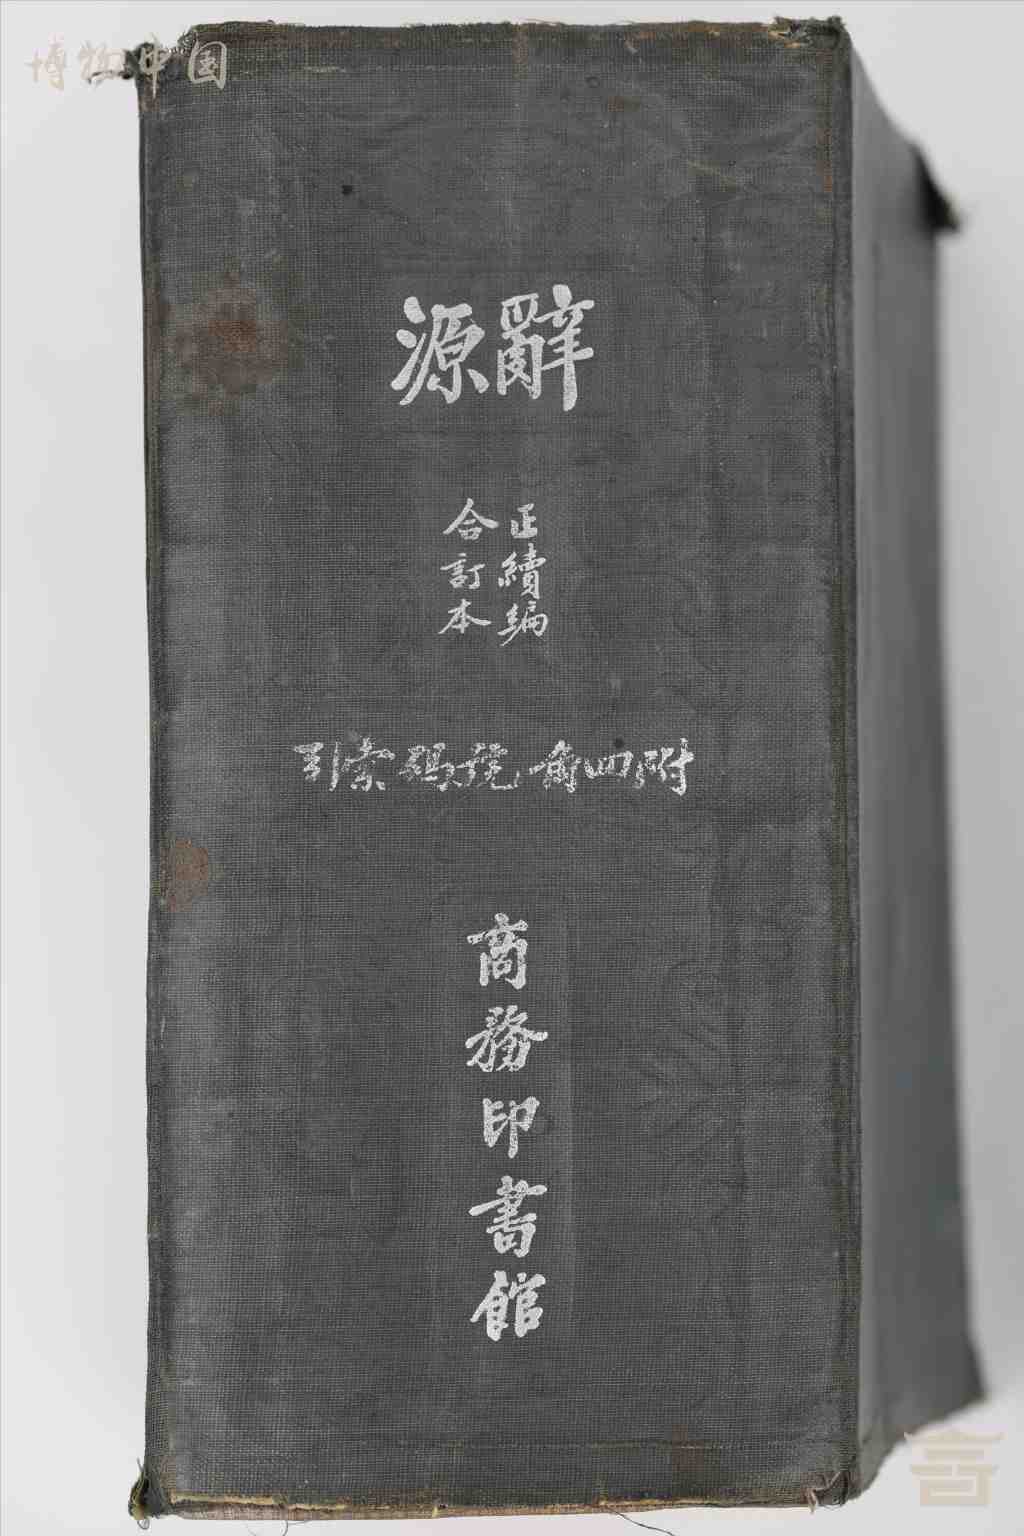 博物中国
辭源
正續編
合訂本
附四角號碼索引
商務印書館